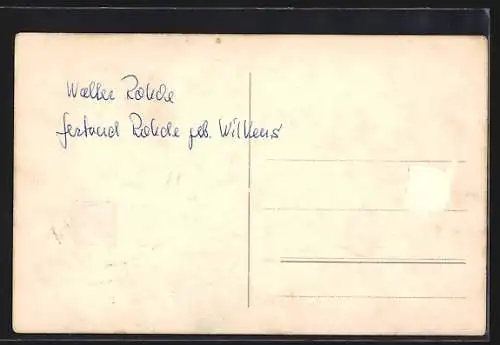 Walter Rohde
Gertraud Rohde geb. Wilkens